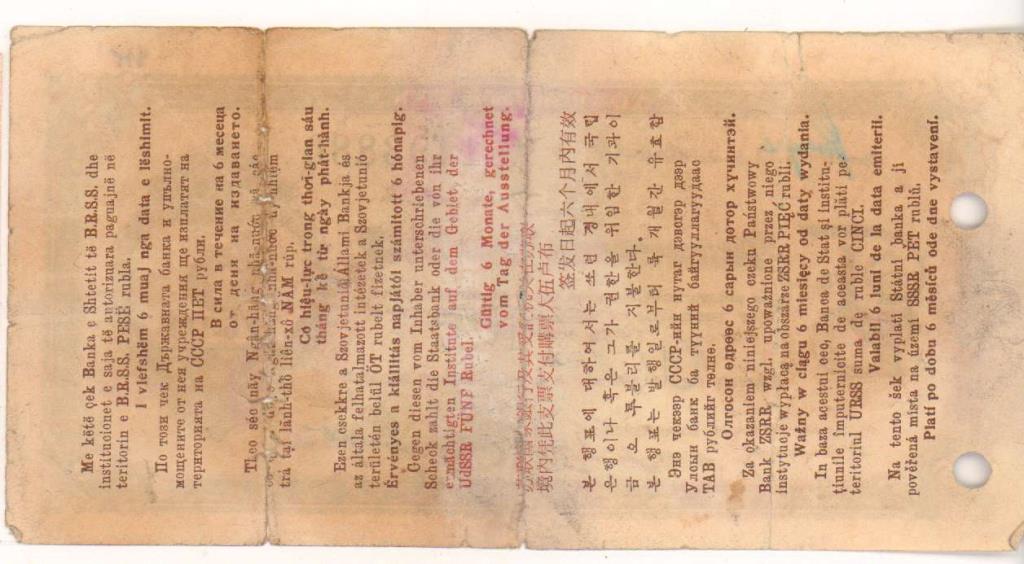 Me këtë çek Banka e Shtetit të B.R.S.S. dhe
institucionet e saja të autorizuara paguajnë në
teritorin e B.R.S.S. PESË rubla.
I vlefshëm 6 muaj nga data e lëshimit.
По този чек Държавната банка и упълно-
мощените от нея учреждения ще изплатят на
територията на СССР ПЕТ рубли.
В сила в течение на 6 месеца
от деня на издаването.
Theo séc này Ngân-hàng nhà-nước và các
trả tại lãnh-thổ liên-xô NĂM rúp.
Có hiệu-lực trong thời-gian sáu
tháng kể từ ngày phát-hành.
Ezen csekkre a Szovjetunió Állami Bankja és
az általa felhatalmazott intézetek a Szovjetunió
területén belül ÖT rubelt fizetnek.
Érvényes a kiállítás napjától számított 6 hónapig.
Gegen diesen vom Inhaber unterschriebenen
Scheck zahlt die Staatsbank oder die von ihr
ermächtigten Institute auf dem Gebiet der
UdSSR FÜNF Rubel.
Gültig 6 Monate, gerechnet
vom Tag der Ausstellung.
境内凭此支票支付購票人伍卢布
签发日起六个月内有效
본 행표에 대하여서는 쏘련 경내에서 국립
은행이나 혹은 그가 권한을 위임한 기관이
금 오 루블리를 지불한다.
본 행표는 발행일로부터 륙 개월간 유효함
Энэ чекээр СССР-ийн нутаг дэвсгэр дээр
Улсын банк ба түүний байгууллагуудаас
ТАВ рублийг төлнө.
Олгосон өдрөөс 6 сарын дотор хүчинтэй.
Za okazaniem niniejszego czeku Państwowy
Bank ZSRR wzgl. upoważnione przez niego
instytucje wypłacą na obszarze ZSRR PIĘĆ rubli.
Ważny w ciągu 6 miesięcy od daty wydania.
In baza acestui cec, Banca de Stat și institu-
țiunile împuternicite de aceasta vor plăti pe
teritoriul URSS suma de ruble CINCI.
Valabil 6 luni de la data emiterii.
Na tento šek vyplatí Státní banka a jí
pověřená místa na území SSSR PET rublů.
Platí po dobu 6 měsíců ode dne vystavení.